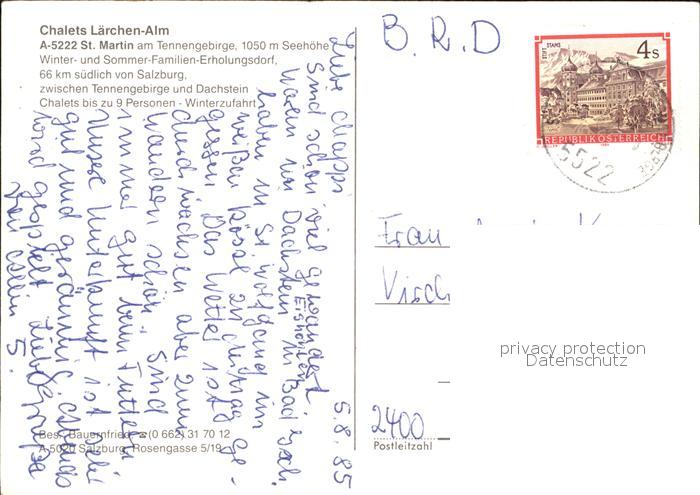 Chalets Lärchen-Alm
A-5222 St. Martin am Tennengebirge, 1050 m Seehöhe
Winter- und Sommer-Familien-Erholungsdorf,
66 km südlich von Salzburg,
zwischen Tennengebirge und Dachstein
Chalets bis zu 9 Personen - Winterzufahrt
Bes. Bauernfried, ☎(0 662) 31 70 12
A-5020 Salzburg, Rosengasse 5/19
5.8.85
Liebe
Sind schon viel gewandert,
waren im Dachstein in Bad Isch.
Eishöhlen
haben in St. Wolfgang im
weißen Rössl zu Mittag ge-
gessen. Das Wetter ist
durchwachsen aber zum
wandern schön. Sind
immer gut beim Futtern
Unsere Unterkunft ist sehr
gut und geräumig.
wird gespielt. Liebe Grüße
B.R.D
STIFT STAMS
4 S
REPUBLIK ÖSTERREICH
5522
Frau
Visch
privacy protection
Datenschutz
2400
Postleitzahl